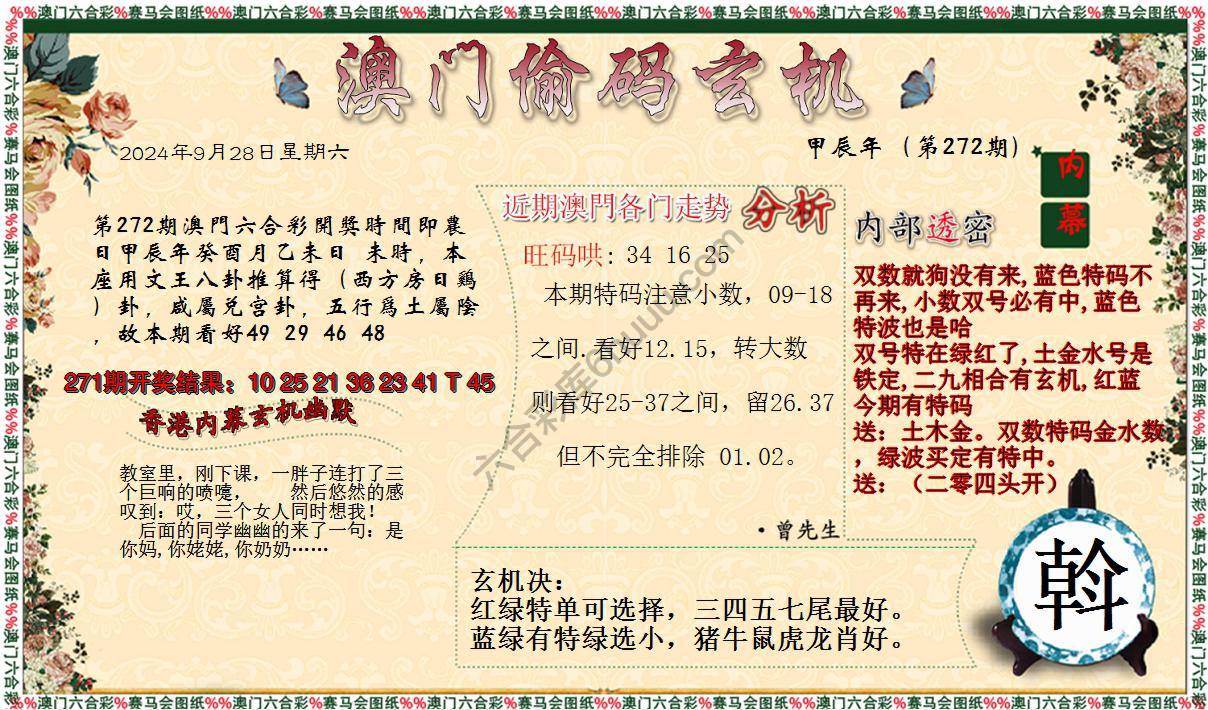 %%澳门六合彩%赛马会图纸%%澳门六合彩%赛马会图纸%%澳门六合彩%赛马会图纸%%澳门六合彩%赛马会图纸%%澳门六合彩%赛马会图纸%%澳门六合彩%赛马会图纸%%
澳门偷码玄机
2024年9月28日星期六
甲辰年（第272期）
内
幕
第272期澳門六合彩開獎時間即農
日甲辰年癸酉月乙未日 未時，本
座用文王八卦推算得（西方房日鷄
）卦，咸屬兑宫卦，五行爲土屬陰
，故本期看好49 29 46 48
271期开奖结果：10 25 21 36 23 41 T 45
香港内幕玄机幽默
教室里，刚下课，一胖子连打了三
个巨响的喷嚏， 然后悠然的感
叹到：哎，三个女人同时想我！
后面的同学幽幽的来了一句：是
你妈,你姥姥,你奶奶……
近期澳門各门走势 分析
旺码哄: 34 16 25
本期特码注意小数，09-18
之间.看好12.15，转大数
则看好25-37之间，留26.37
但不完全排除 01.02。
·曾先生
内部透密
双数就狗没有来,蓝色特码不
再来,小数双号必有中,蓝色
特波也是哈
双号特在绿红了,土金水号是
铁定,二九相合有玄机,红蓝
今期有特码
送：土木金。双数特码金水数
，绿波买定有特中。
送：（二零四头开）
玄机决：
红绿特单可选择，三四五七尾最好。
蓝绿有特绿选小，猪牛鼠虎龙肖好。
斡
%%澳门六合彩%赛马会图纸%%澳门六合彩%赛马会图纸%%澳门六合彩%赛马会图纸%%澳门六合彩%赛马会图纸%%澳门六合彩%赛马会图纸%%澳门六合彩%赛马会图纸%%